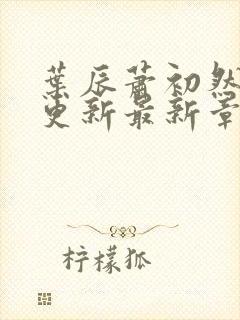 葉辰蕭初然
更新最新章
柠檬狐